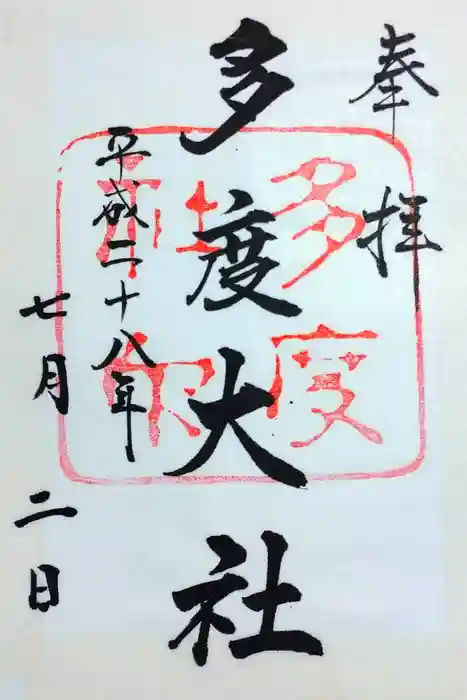 奉拝
多度大社
平成二十八年
七月二日
多度
社
印